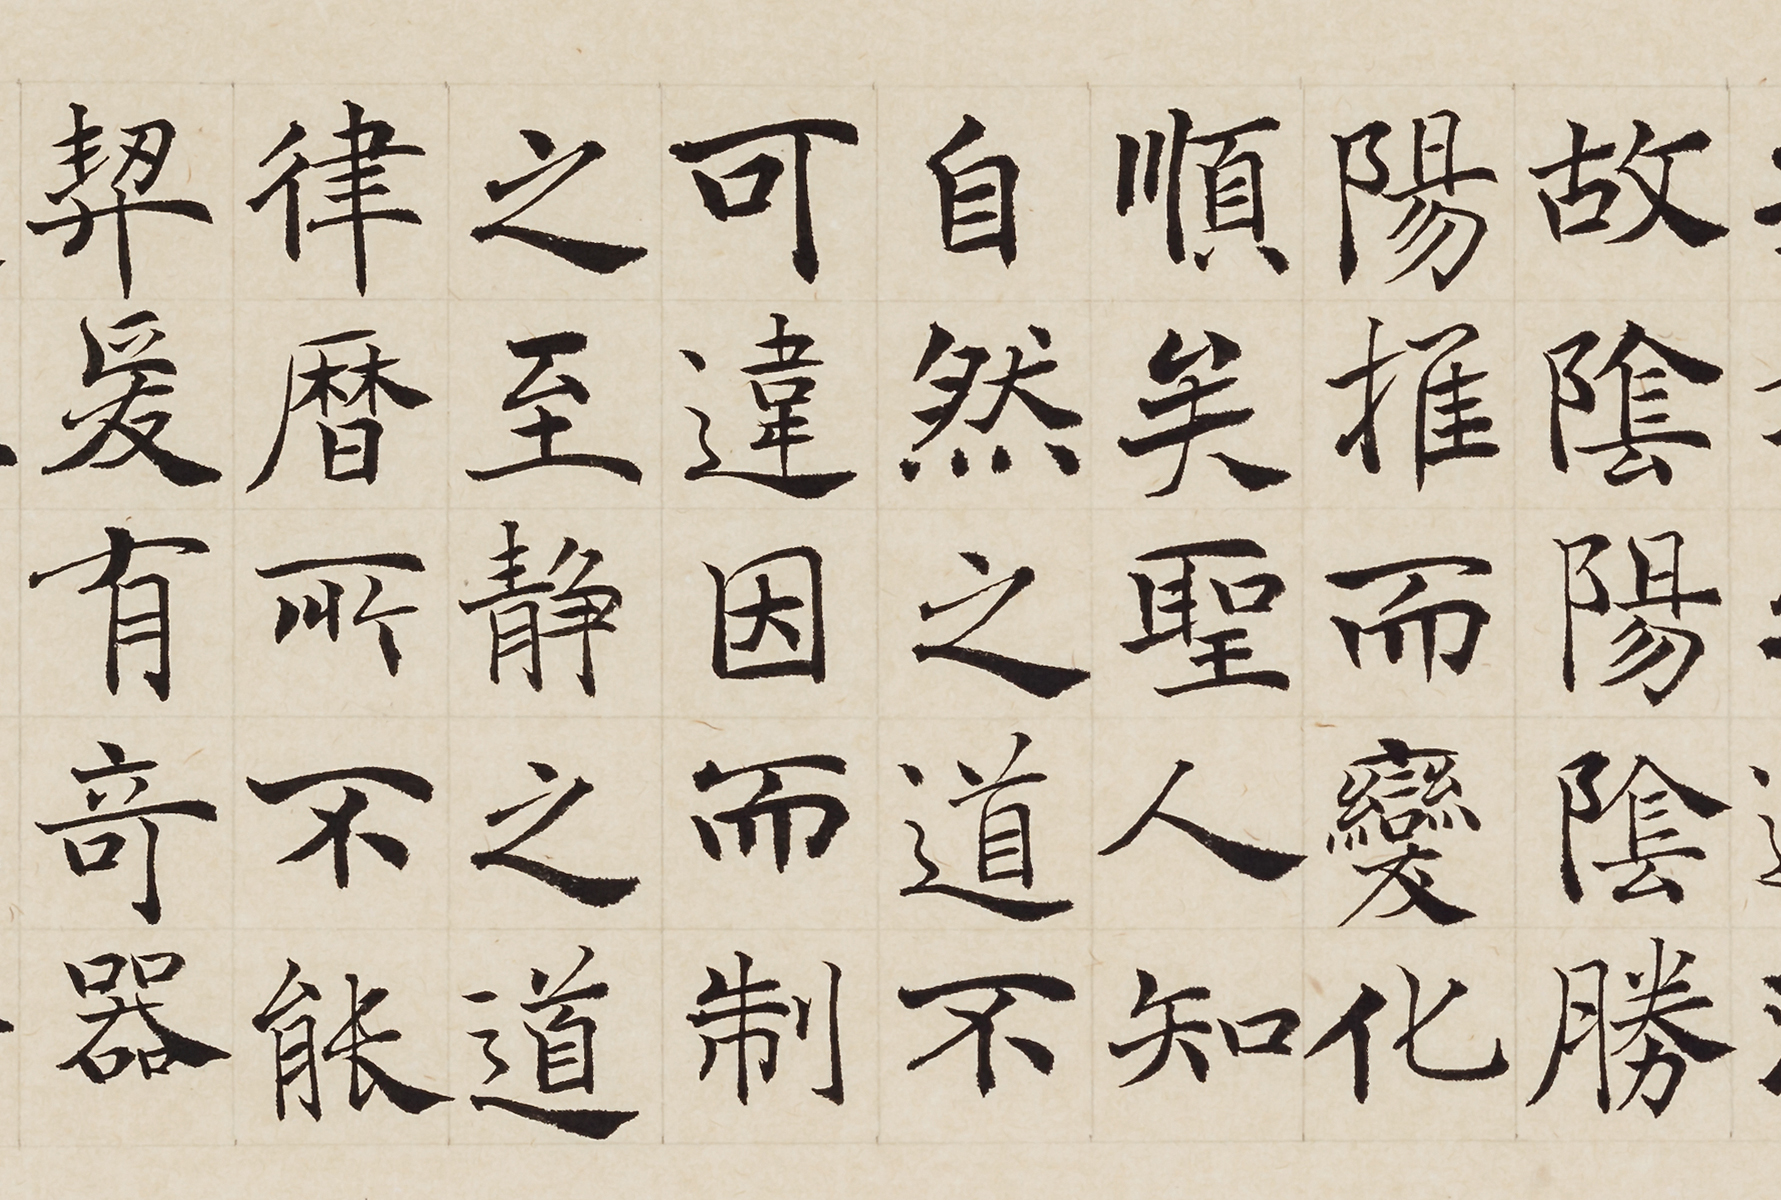 故陰陽陰勝
陽推而變化
順矣聖人知
自然之道不
可違因而制
之至静之道
律暦所不能
契爰有竒器